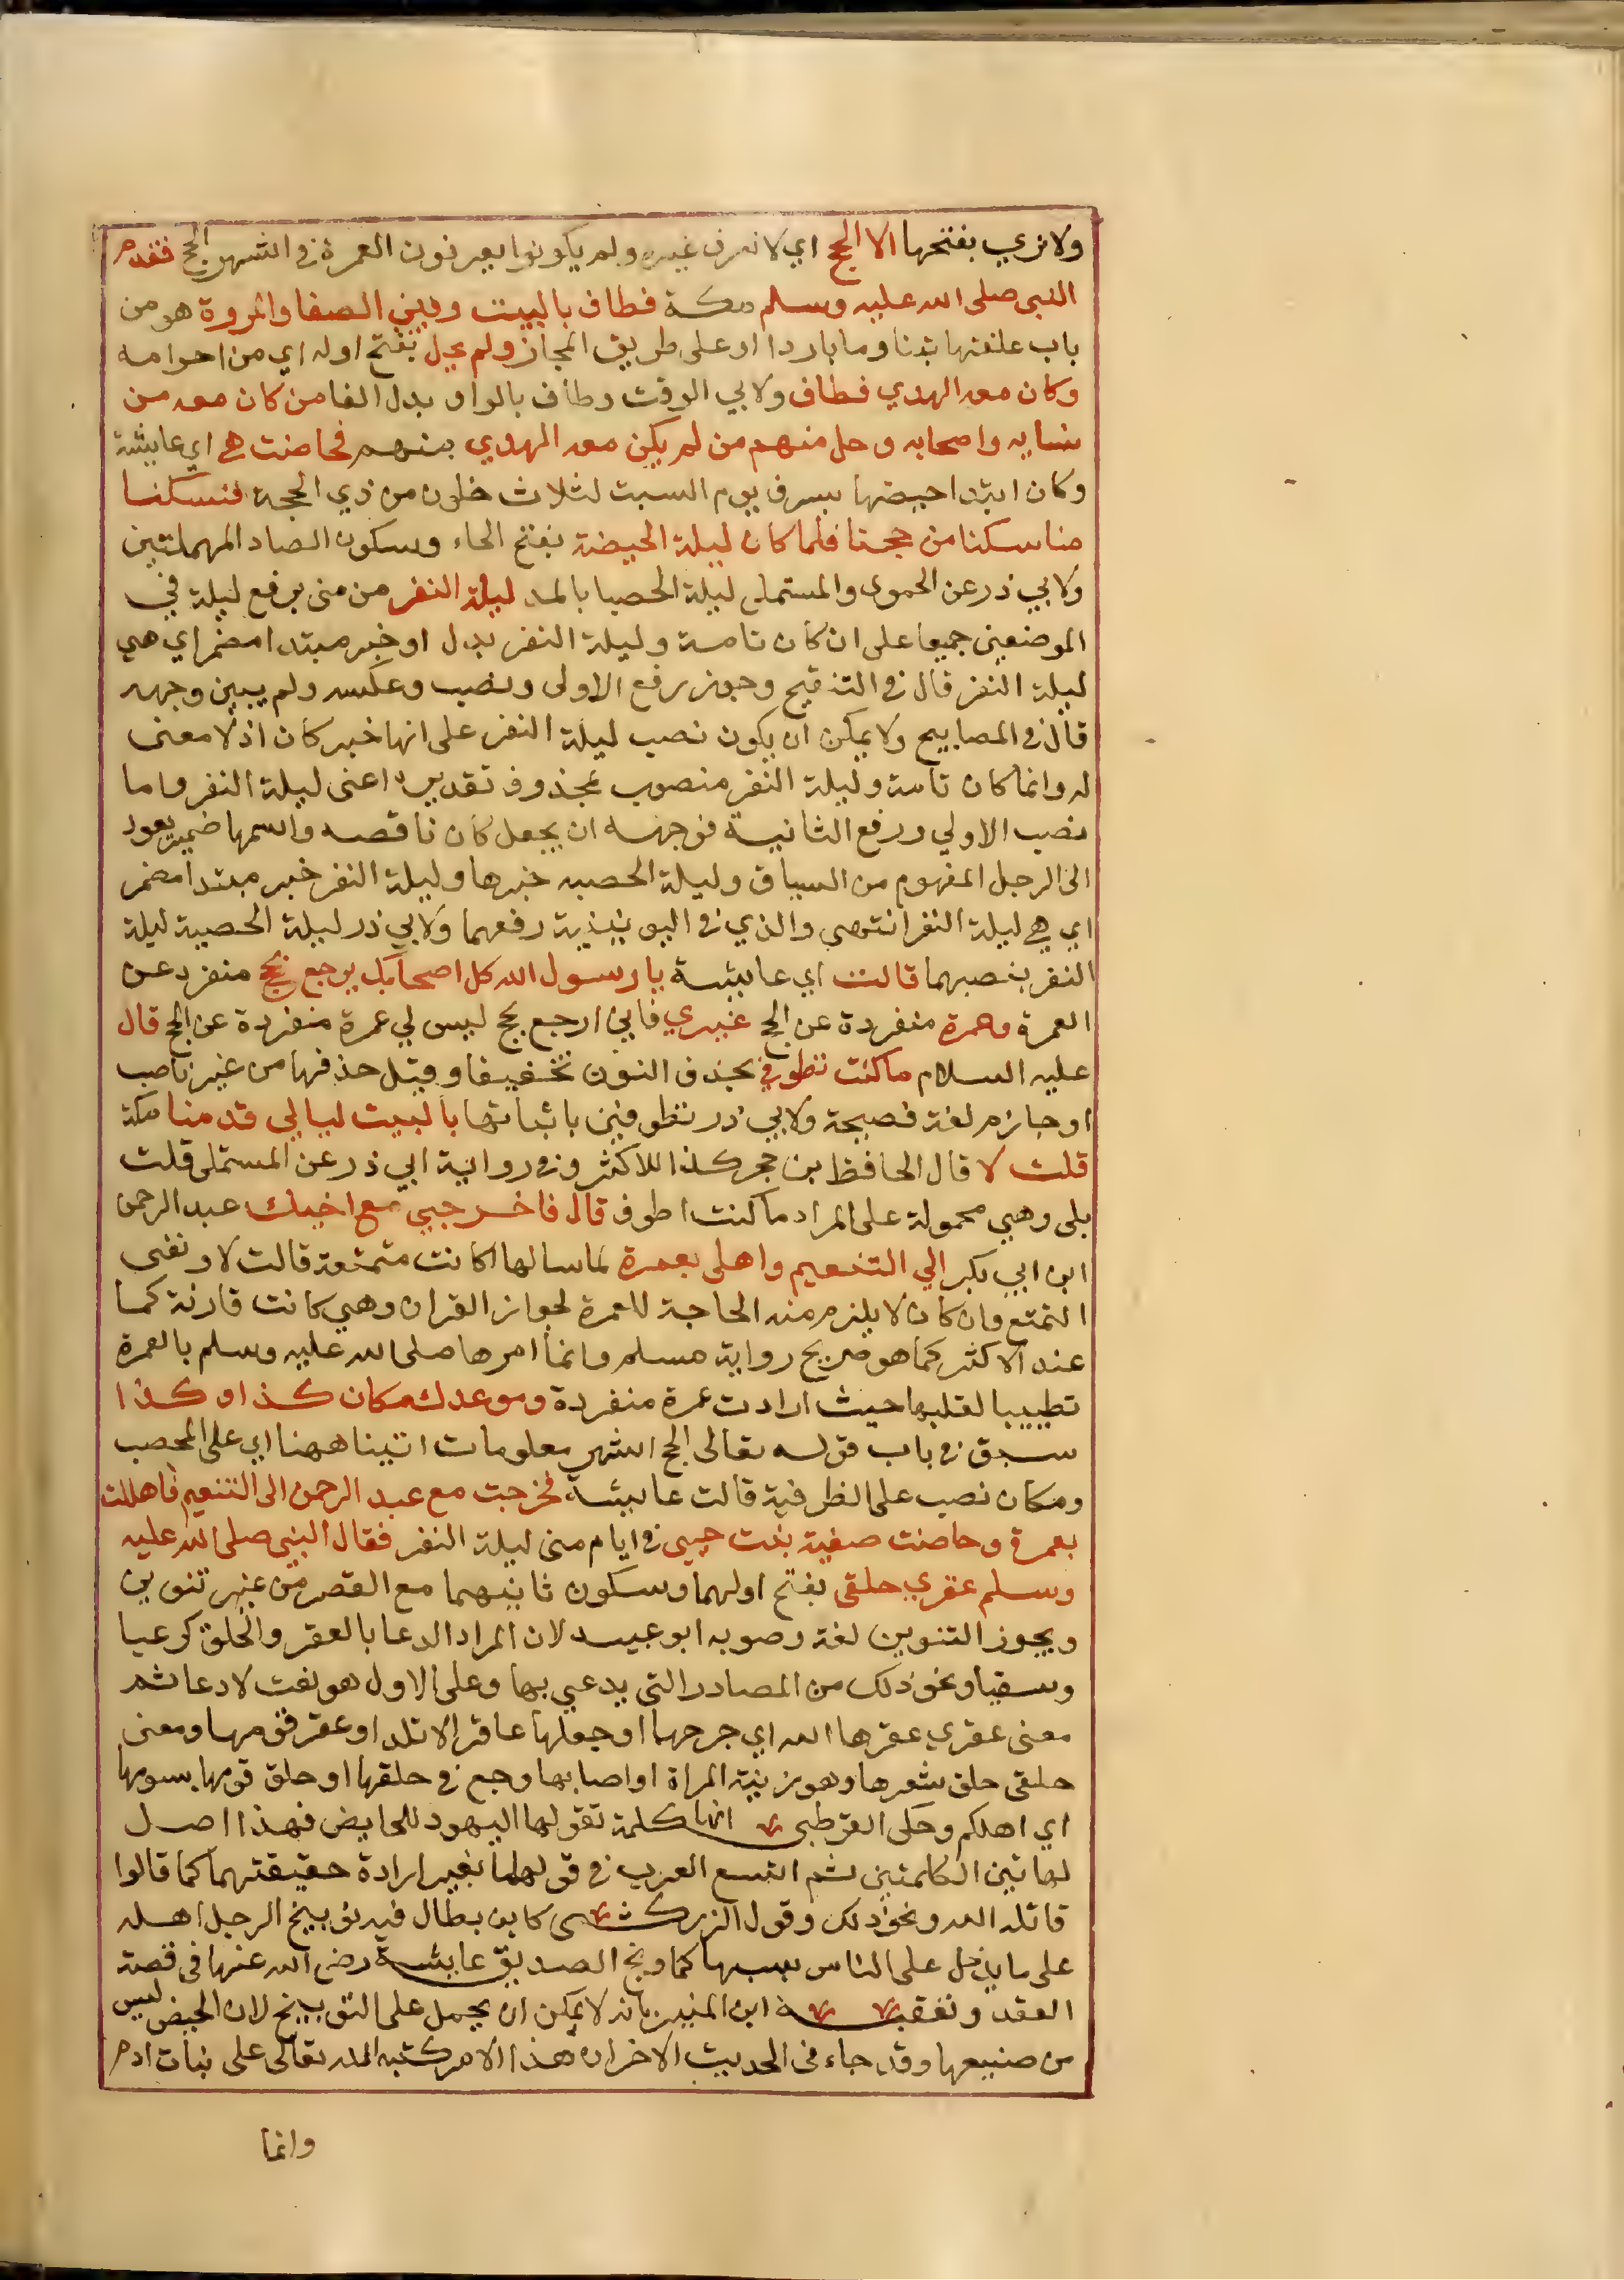 ولا نري بفتحها الا الحج اي لا نعرف غيره ولم يكونوا يعرفون العمرة في اشهر الحج فقدم
النبي صلى الله عليه وسلم مكة فطاف بالبيت وبين الصفا والمروة هو من
باب علفتها تبنا وما باردا او على طريق المجاز ولم يحل بفتح اوله اي من احرامه
وكان معه الهدي فطاف ولابي الوقت وطاف بالواو بدل الفا من كان معه من
نسايه واصحابه وحل منهم من لم يكن معه الهدي منهم فحاضت هي اي عايشة
وكان ابتدا حيضها بسرف يوم السبت لثلاث خلون من ذي الحجة فنسكنا
مناسكنا من حجنا فلما كان ليلة الحيضة بفتح الحاء وسكون الصاد المهملتين
ولابي ذر عن الحموى والمستملي ليلة الحصبا بالمد ليلة النفر من منى برفع ليلة في
الموضعين جميعا على ان كان تامة وليلة النفر بدل او خبر مبتدا مضمر اي هي
ليلة النفر قال في التنقيح وجوز رفع الاولى ونصب وعكسه ولم يبين وجهه
قال في المصابيح ولا يمكن ان يكون نصب ليلة النفر على انها خبر كان اذ لا معنى
له وانما كان تامة وليلة النفر منصوب بمحذوف تقديره اعنى ليلة النفر واما
نصب الاولي ورفع الثانية فوجهه ان يجعل كان ناقصه واسمها ضمير يعود
الى الرحيل المفهوم من السياق وليلة الحصبه خبرها وليلة النفر خبر مبتدا مضمر
اي هي ليلة النفر انتهى والذي في اليونينية رفعهما ولابي ذر ليلة الحصبة ليلة
النفر بنصبهما قالت اي عايشة يا رسول الله كل اصحابك يرجع بحج منفرد عن
العمرة وعمرة منفردة عن الحج غيري فاني ارجع بحج ليس لي عمرة منفردة عن الحج قال
عليه السلام ما كنت تطوفي بحذف النون تخفيفا وقيل حذفها من غير ناصب
او جازم لغة فصيحة ولابي ذر تطوفين باثباتها بالبيت ليالي قدمنا مكة
قلت لا قال الحافظ بن حجر كذا للاكثر وفي رواية ابي ذر عن المستملى قلت
بلى وهي محمولة على المراد ما كنت اطوف قال فاخرجي مع اخيك عبد الرحمن
ابن ابي بكر الي التنعيم واهلى بعمرة لما سالها اكانت متمتعة قالت لا ونفى
التمتع وان كان لا يلزم منه الحاجة للعمرة لجواز القران وهي كانت قارنة كما
عند الاكثر كما هو صريح رواية مسلم وانما امرها صلى الله عليه وسلم بالعمرة
تطييبا لقلبها حيث ارادت عمرة منفردة وموعدك مكان كذا وكذا
سبق في باب قوله تعالى الحج اشهر معلومات اتينا ههنا اي على المحصب
ومكان نصب على الظرفية قالت عايشة فخرجت مع عبد الرحمن الى التنعيم فاهللت
بعمرة وحاضت صفية بنت حيى في ايام منى ليلة النفر فقال النبي صلى الله عليه
وسلم عقري حلقى بفتح اولهما وسكون ثانيهما مع القصر من غير تنوين
ويجوز التنوين لغة وصوبه ابو عبيد لان المراد الدعا بالعقر والحلق كرعيا
وسقيا ونحو ذلك من المصادر التي يدعي بها وعلى الاول هو نعت لا دعا ثم
معنى عقري عقرها الله اي جرحها او جعلها عاقرا لا تلد او عقر قومها ومعنى
حلقى حلق شعرها وهو زينة المراة او اصابها وجع في حلقها او حلق قومها بسومها
اي اهلكم وحكى القرطبي انها كلمة تقولها اليهود للحايض فهذا اصل
لهاتين الكلمتين ثم اتسع العرب في قولهما بغير ارادة حقيقتهما كما قالوا
قاتله الله ونحو ذلك وقول الزركشى كابن بطال فيه توبيخ الرجل اهله
على ما يدخل على الناس بسببها كما وبخ الصديق عايشة رضى الله عنها في قصة
العقد وتعقبه ابن المنير بانه لا يمكن ان يحمل على التوبيخ لان الحيض ليس
من صنيعها وقد جاء في الحديث الاخر ان هذا الامر كتبه الله تعالى على بنات ادم
وانما